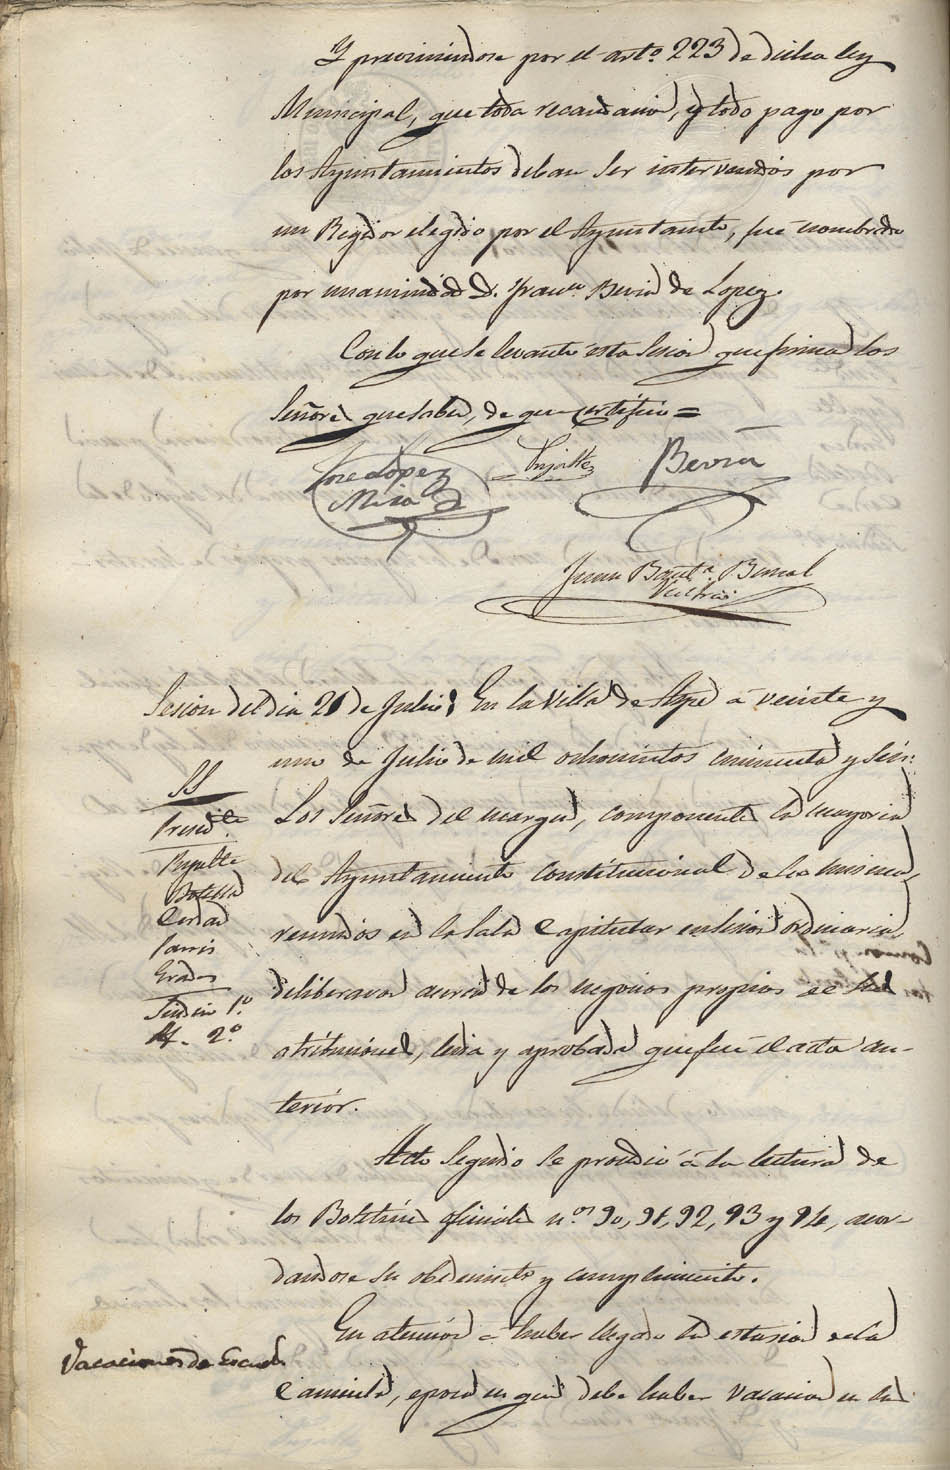 Y previniendose por el art.º 223 de dicha ley
Municipal, que toda recaudacion, y todo pago por
los Ayuntamientos deban ser intervenidos por
un Regidor elegido por el Ayuntamto, fué nombrado
por unanimidad D. Franco Beviá de Lopez.
Con lo que se levantó esta sesion que firman los
Señores que saben, de que certifico =
Jose Lopez
Mira
Pujalte
Beviá
Juan Bauta. Bernal
Sesion del dia 21 de Julio. En la Villa de Aspe á veinte y
uno de Julio de mil ochocientos cincuenta y seis:
Los Señores del margen, componentes la mayoria
del Ayuntamiento Constitucional de la misma,
reunidos en la sala Capitular en sesion ordinaria
deliberaron acerca de los negocios propios de sus
atribuciones, leida y aprobada que fué el acta an-
terior.
SS
Presidte.
Pujalte
Botella
Cerdan
Pavis
Erades
Sindico 1.º
Yd. 2.º
Acto seguido se procedió á la lectura de
los Boletines oficiales n.os 90, 91, 92, 93 y 94, acor-
dandose su obedecimto y cumplimiento.
Vacaciones de Escuelas
En atencion á haber llegado la estacion de la
Canicula, epoca en que debe haber vacacion en las